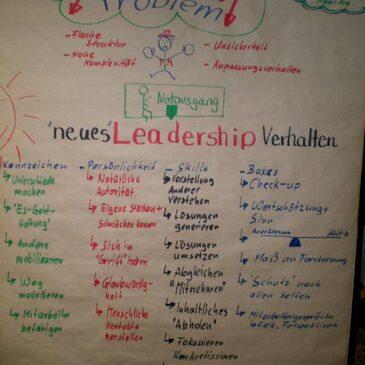 Problem
- Flache
Struktur
- Hohe
Komplexität
- Unsicherheit
- Anpassungsverhalten
Notausgang
"neues" Leadership Verhalten
Kennzeichen
↳ Unterschiede
machen
↳ "Es-Geht-
Haltung"
↳ Andere
mobilisieren
↳ Weg
modellieren
↳ Mitarbeiter
befähigen
- Persönlichkeit
↳ Natürliche
Autorität
↳ Eigene Stärken+
Schwächen kennen
↳ Sich im
"Griff" haben
↳ Glaubwürdig-
keit
↳ Menschliche
Kontakte
herstellen
- Skills
↳ Vorstellung
Anderer
verstehen
↳ Lösungen
generieren
↳ Lösungen
umsetzen
↳ Abgleichen
"Mitnehmen"
↳ Inhaltliches
"Abholen"
↳ Fokussieren
Konkretisieren
- Basics
↳ Check-up
↳ Wertschätzung+
Sinn
↳ Anerkennung Kritik
↳ Maß an Forderung
↳ "Schutz" nach
allen Seiten
↳ Mitarbeitergespräche
Ziele, Perspektiven